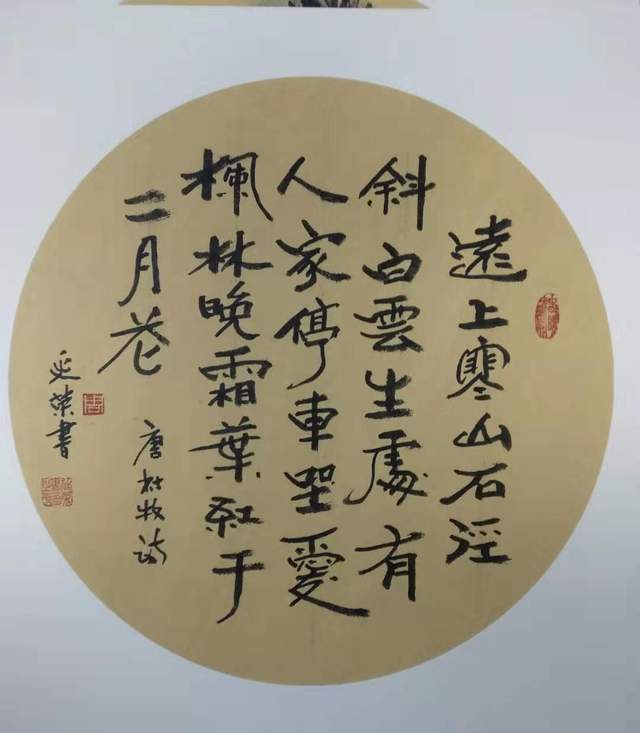 遠上寒山石徑
斜白雲生處有
人家停車坐愛
楓林晚霜葉紅于
二月花
唐杜牧詩
荣書